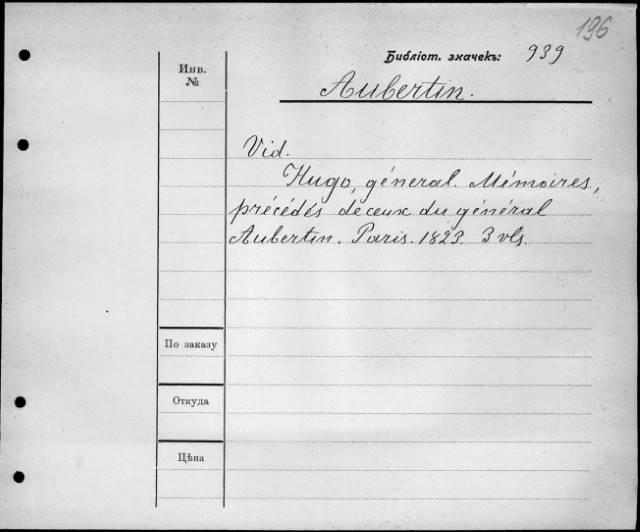 196
Библіот. значекъ: 939
Инв.
№
Aubertin.
Vid.
Hugo, général. Mémoires,
précédés de ceux du général
Aubertin. Paris. 1823. 3 vls.
По заказу
Откуда
Цѣна